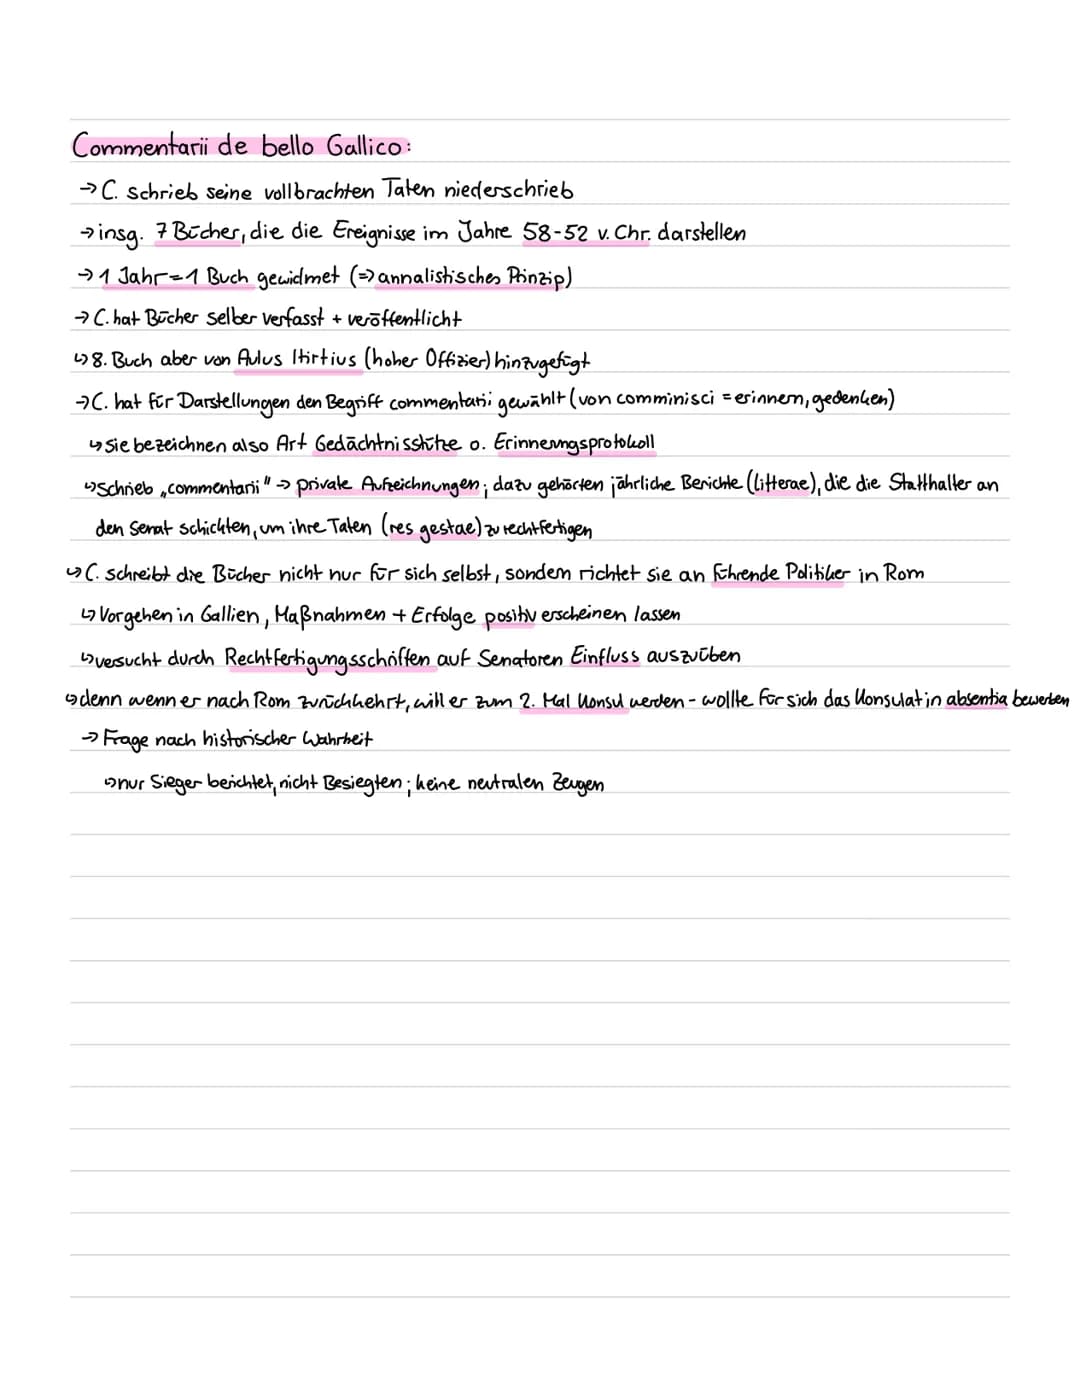 Commentarii de bello Gallico:
→ C. schrieb seine vollbrachten Taten niederschrieb
→ insg. 7 Bücher, die die Ereignisse im Jahre 58-52 v. Chr. darstellen
→ 1 Jahr = 1 Buch gewidmet (⇒ annalistisches Prinzip)
→ C. hat Bücher selber verfasst + veröffentlicht
↳ 8. Buch aber von Aulus Hirtius (hoher Offizier) hinzugefügt
→ C. hat für Darstellungen den Begriff commentarii gewählt (von comminisci = erinnern, gedenken)
↳ sie bezeichnen also Art Gedächtnisstütze o. Erinnerungsprotokoll
↳ Schrieb „commentarii" → private Aufzeichnungen; dazu gehörten jährliche Berichte (litterae), die die Statthalter an
den Senat schickten, um ihre Taten (res gestae) zu rechtfertigen
↳ C. schreibt die Bücher nicht nur für sich selbst, sondern richtet sie an führende Politiker in Rom
↳ Vorgehen in Gallien, Maßnahmen + Erfolge positiv erscheinen lassen
↳ versucht durch Rechtfertigungsschriften auf Senatoren Einfluss auszuüben
↳ denn wenn er nach Rom zurückkehrt, will er zum 2. Mal Konsul werden - wollte für sich das Konsulat in absentia bewerben
→ Frage nach historischer Wahrheit
↳ nur Sieger berichtet, nicht Besiegten; keine neutralen Zeugen